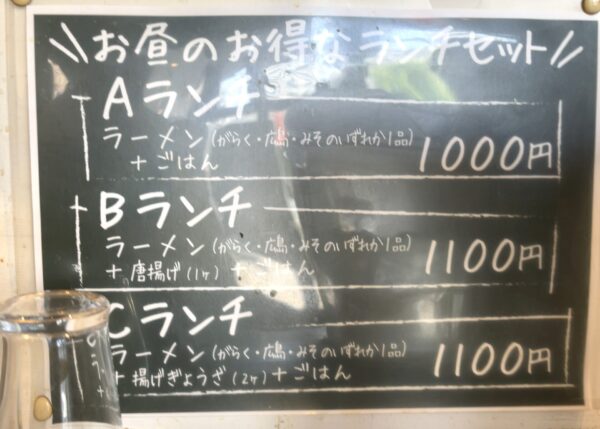 \\お昼のお得なランチセット//
Aランチ
ラーメン(がらく・広島・みそのいずれか1品)
+ごはん 1000円
Bランチ
ラーメン(がらく・広島・みそのいずれか1品)
+唐揚げ(1ヶ)+ごはん 1100円
Cランチ
ラーメン(がらく・広島・みそのいずれか1品)
+揚げぎょうざ(2ヶ)+ごはん 1100円